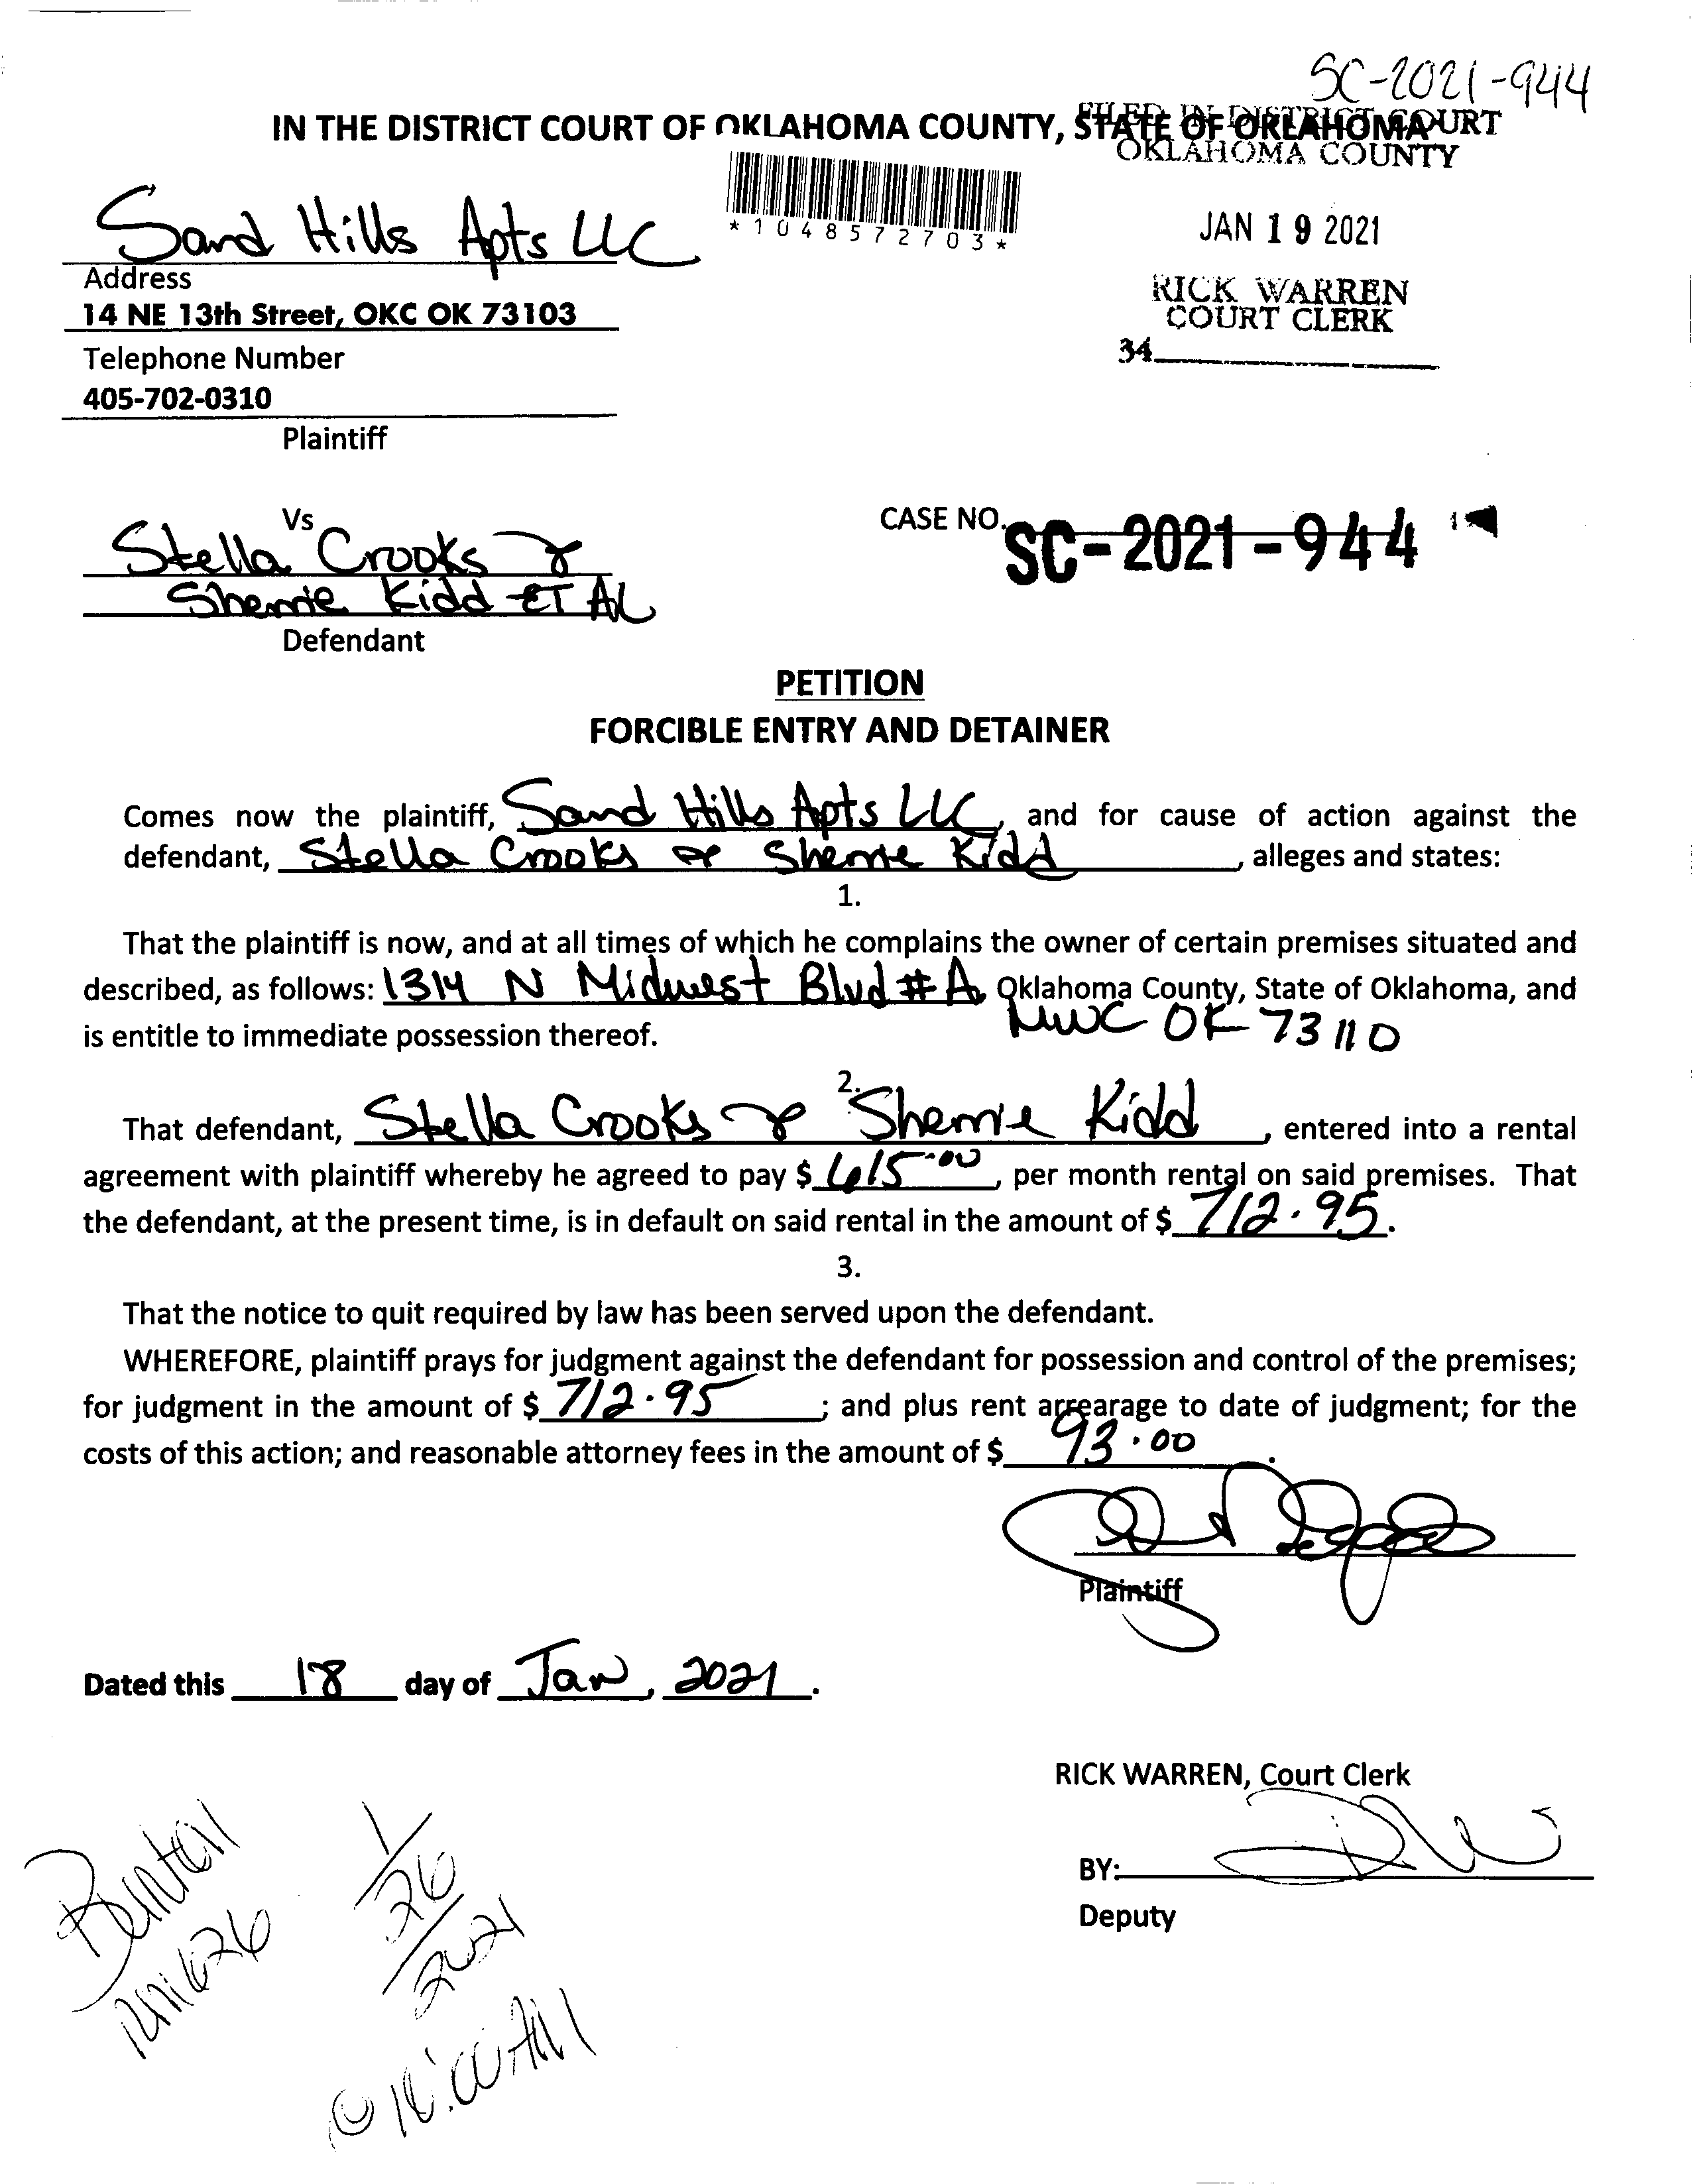 SC-2021-944
IN THE DISTRICT COURT OF OKLAHOMA COUNTY, STATE OF OKLAHOMA
FILED IN DISTRICT COURT
OKLAHOMA COUNTY
*1048572703*
JAN 19 2021
RICK WARREN
COURT CLERK
34
Sand Hills Apts LLC
Address
14 NE 13th Street, OKC OK 73103
Telephone Number
405-702-0310
Plaintiff
Vs
Stella Crooks &
Sherrie Kidd ET AL
Defendant
CASE NO. SC-2021-944
PETITION
FORCIBLE ENTRY AND DETAINER
Comes now the plaintiff, Sand Hills Apts LLC, and for cause of action against the
defendant, Stella Crooks & Sherrie Kidd, alleges and states:
1.
That the plaintiff is now, and at all times of which he complains the owner of certain premises situated and
described, as follows: 1314 N Midwest Blvd #A, Oklahoma County, State of Oklahoma, and
is entitle to immediate possession thereof. MWC OK 73110
2.
That defendant, Stella Crooks & Sherrie Kidd, entered into a rental
agreement with plaintiff whereby he agreed to pay $ 615.00, per month rental on said premises. That
the defendant, at the present time, is in default on said rental in the amount of $ 712.95.
3.
That the notice to quit required by law has been served upon the defendant.
WHEREFORE, plaintiff prays for judgment against the defendant for possession and control of the premises;
for judgment in the amount of $ 712.95; and plus rent arrearage to date of judgment; for the
costs of this action; and reasonable attorney fees in the amount of $ 93.00.
Plaintiff
Dated this 18 day of Jan, 2021.
RICK WARREN, Court Clerk
BY:
Deputy
1/26/2021